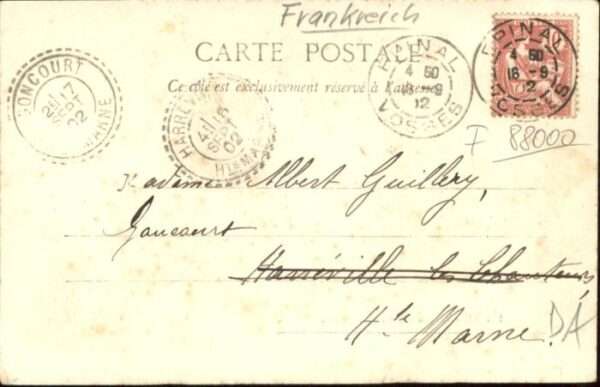 Frankreich
CARTE POSTALE
Ce côté est exclusivement réservé à l'adresse
GONCOURT
17
SEPT
02
MARNE
16
SEPT
02
EPINAL
4 50
16 - 9
02
VOSGES
EPINAL
4 50
16 - 9
02
VOSGES
F 88000
Madame Albert Guillery,
Goncourt
Harréville les Chanteurs,
Hte Marne.
DÁ